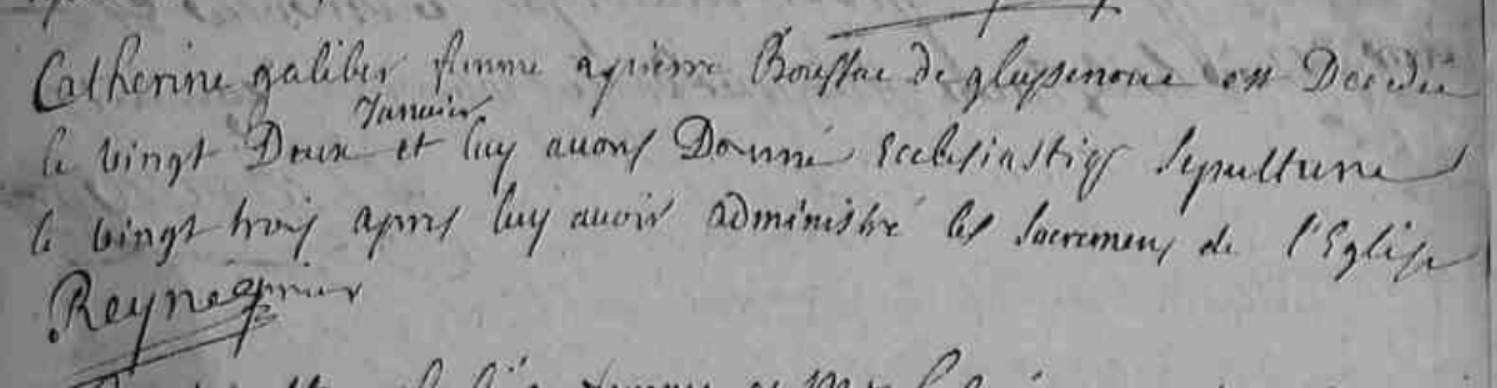 Catherine galiber femme a pierre Bouffac de est Decedee
Janvier
le vingt Deux et luy avons Donné Ecclesiastiqs sepulture
le vingt trois apres luy avoir administré les sacremens de l'Eglise
Reyne prieur